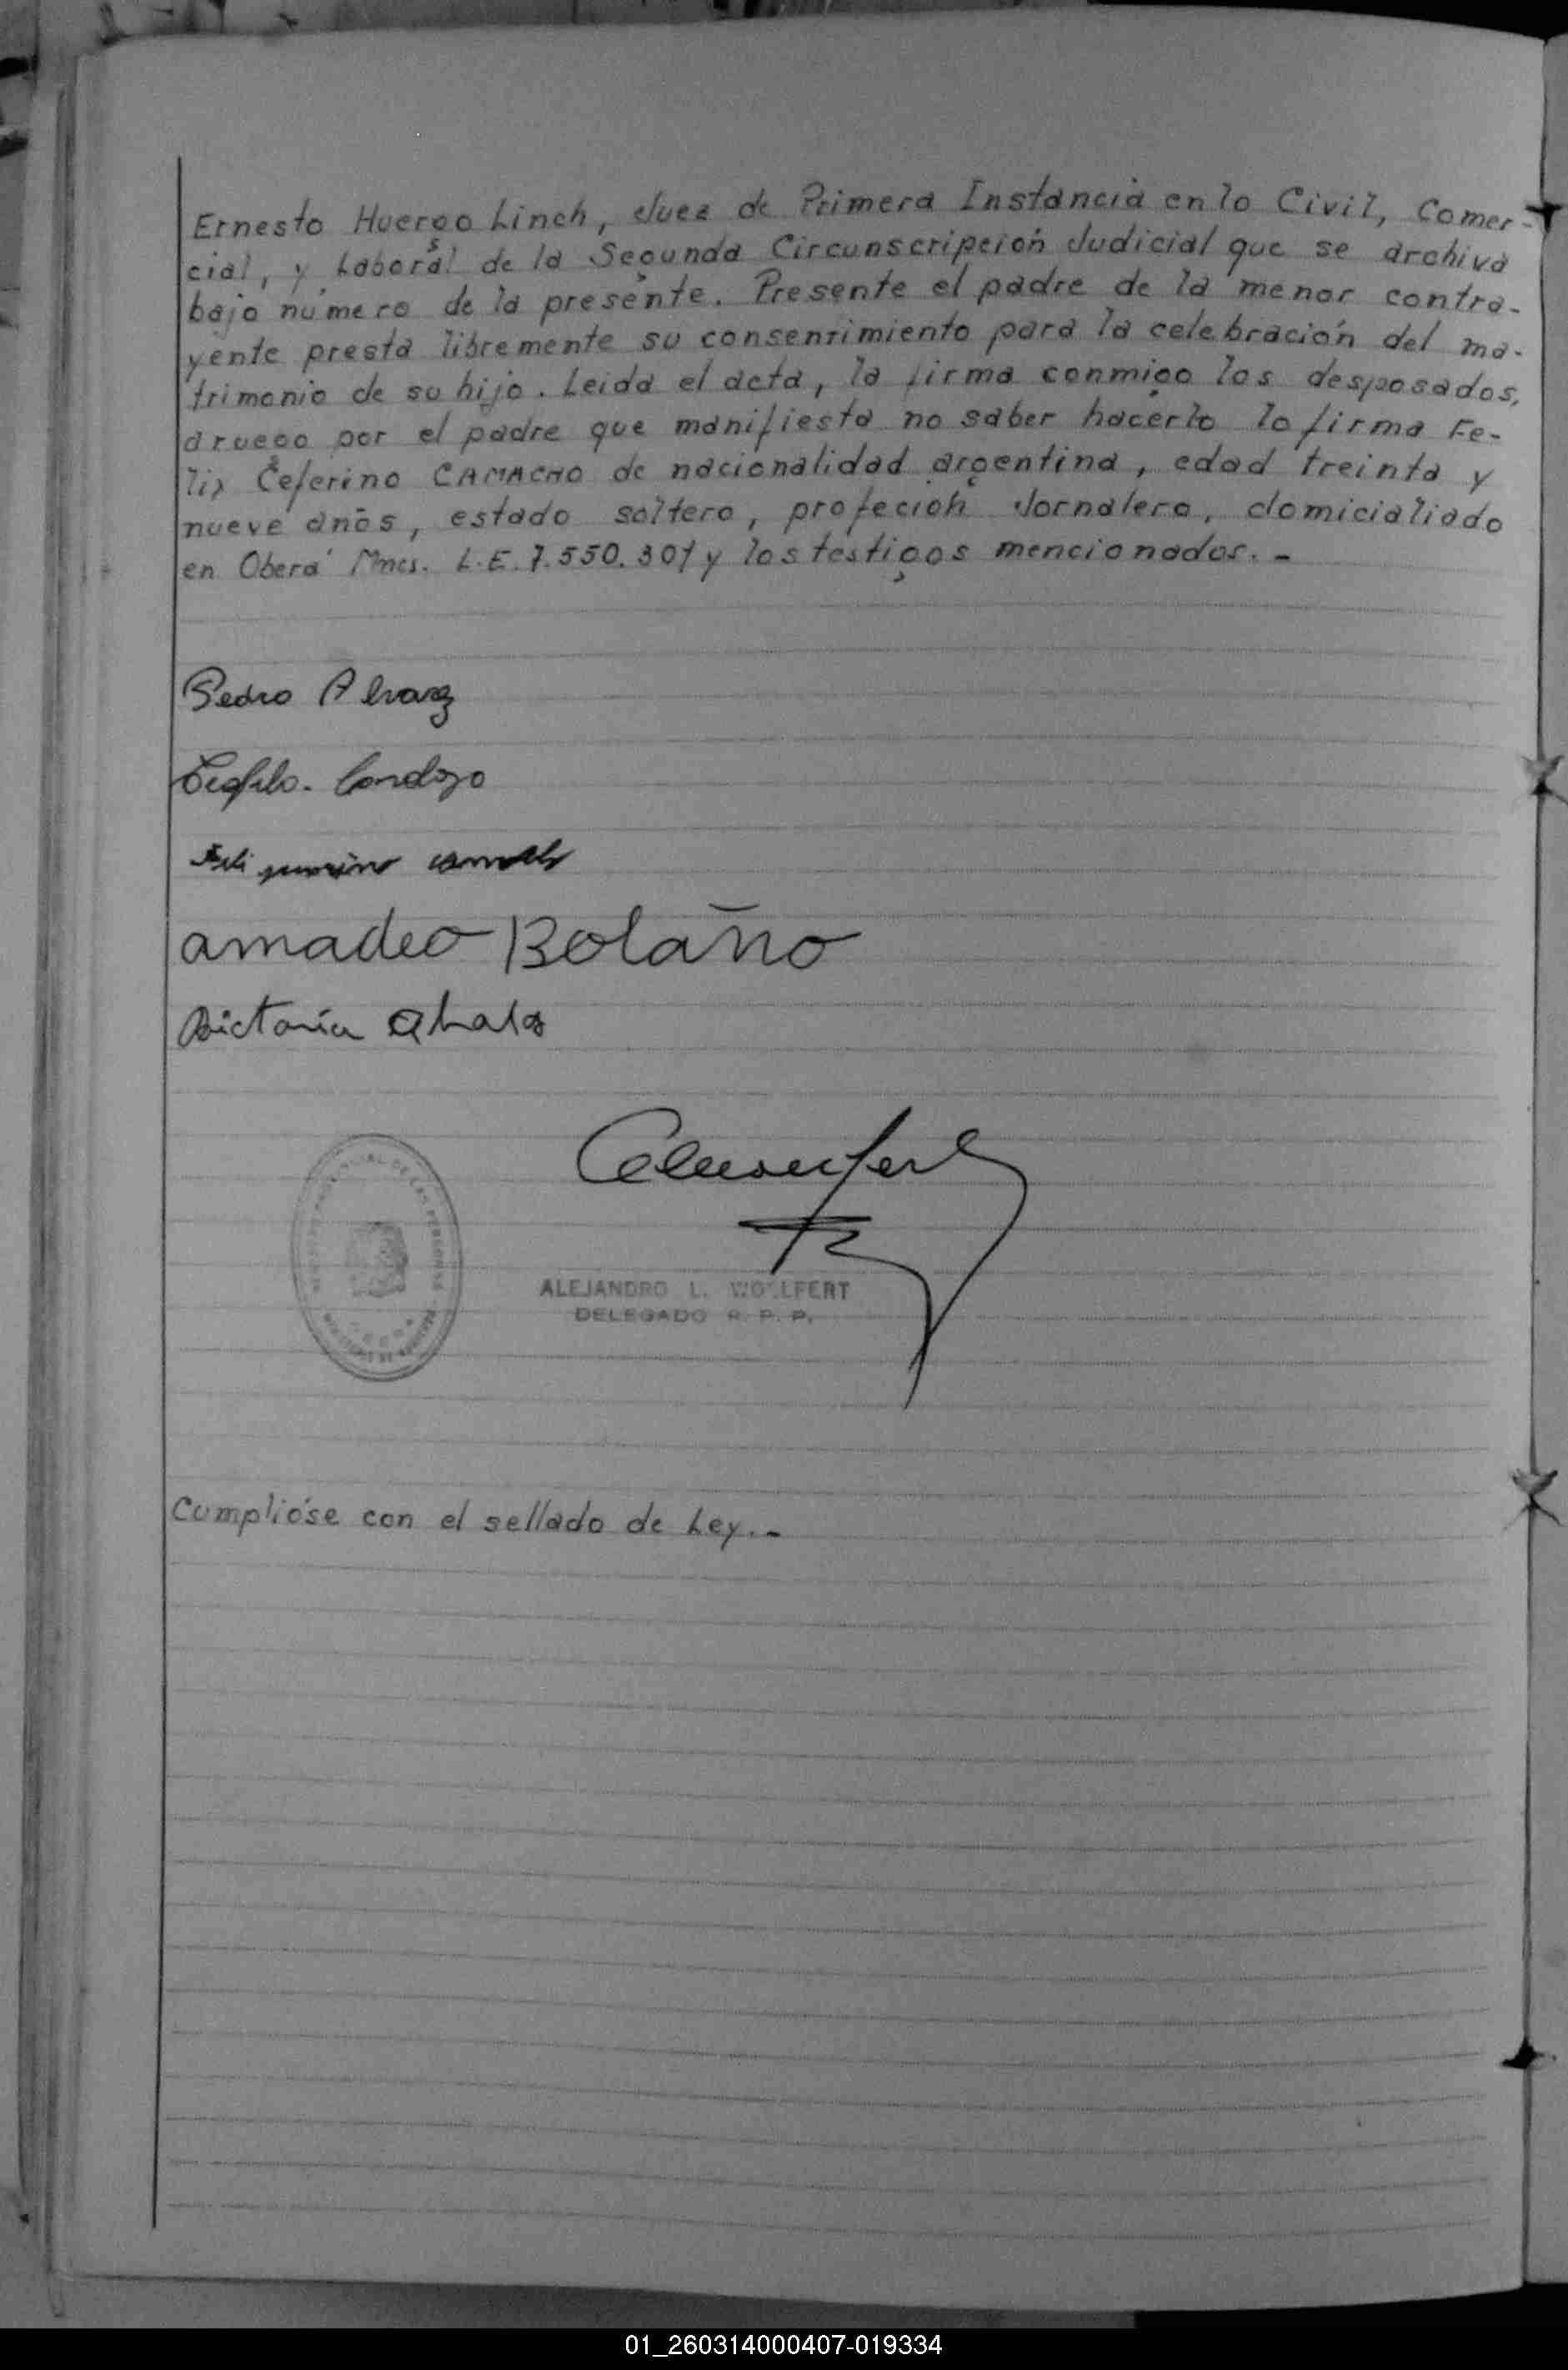 Ernesto Huergo Linch, Juez de Primera Instancia en lo Civil, Comer-
cial, y Laboral de la Segunda Circunscripción Judicial que se archiva
bajo número de la presente. Presente el padre de la menor contra-
yente presta libremente su consentimiento para la celebración del ma-
trimonio de su hija. Leida el acta, la firma conmigo los desposados,
a ruego por el padre que manifiesta no saber hacerlo lo firma Fe-
lix Ceferino CAMACHO de nacionalidad argentina, edad treinta y
nueve años, estado soltero, profeción Jornalero, domicialiado
en Oberá Mnes. L.E. 7.550.307 y los testigos mencionados. -
Pedro Alvarez
Teofilo. Cardozo
amadeo Bolaño
Victoria
ALEJANDRO L. WOLLFERT
DELEGADO R. P. P.
Cumplióse con el sellado de Ley. -
01_260314000407-019334